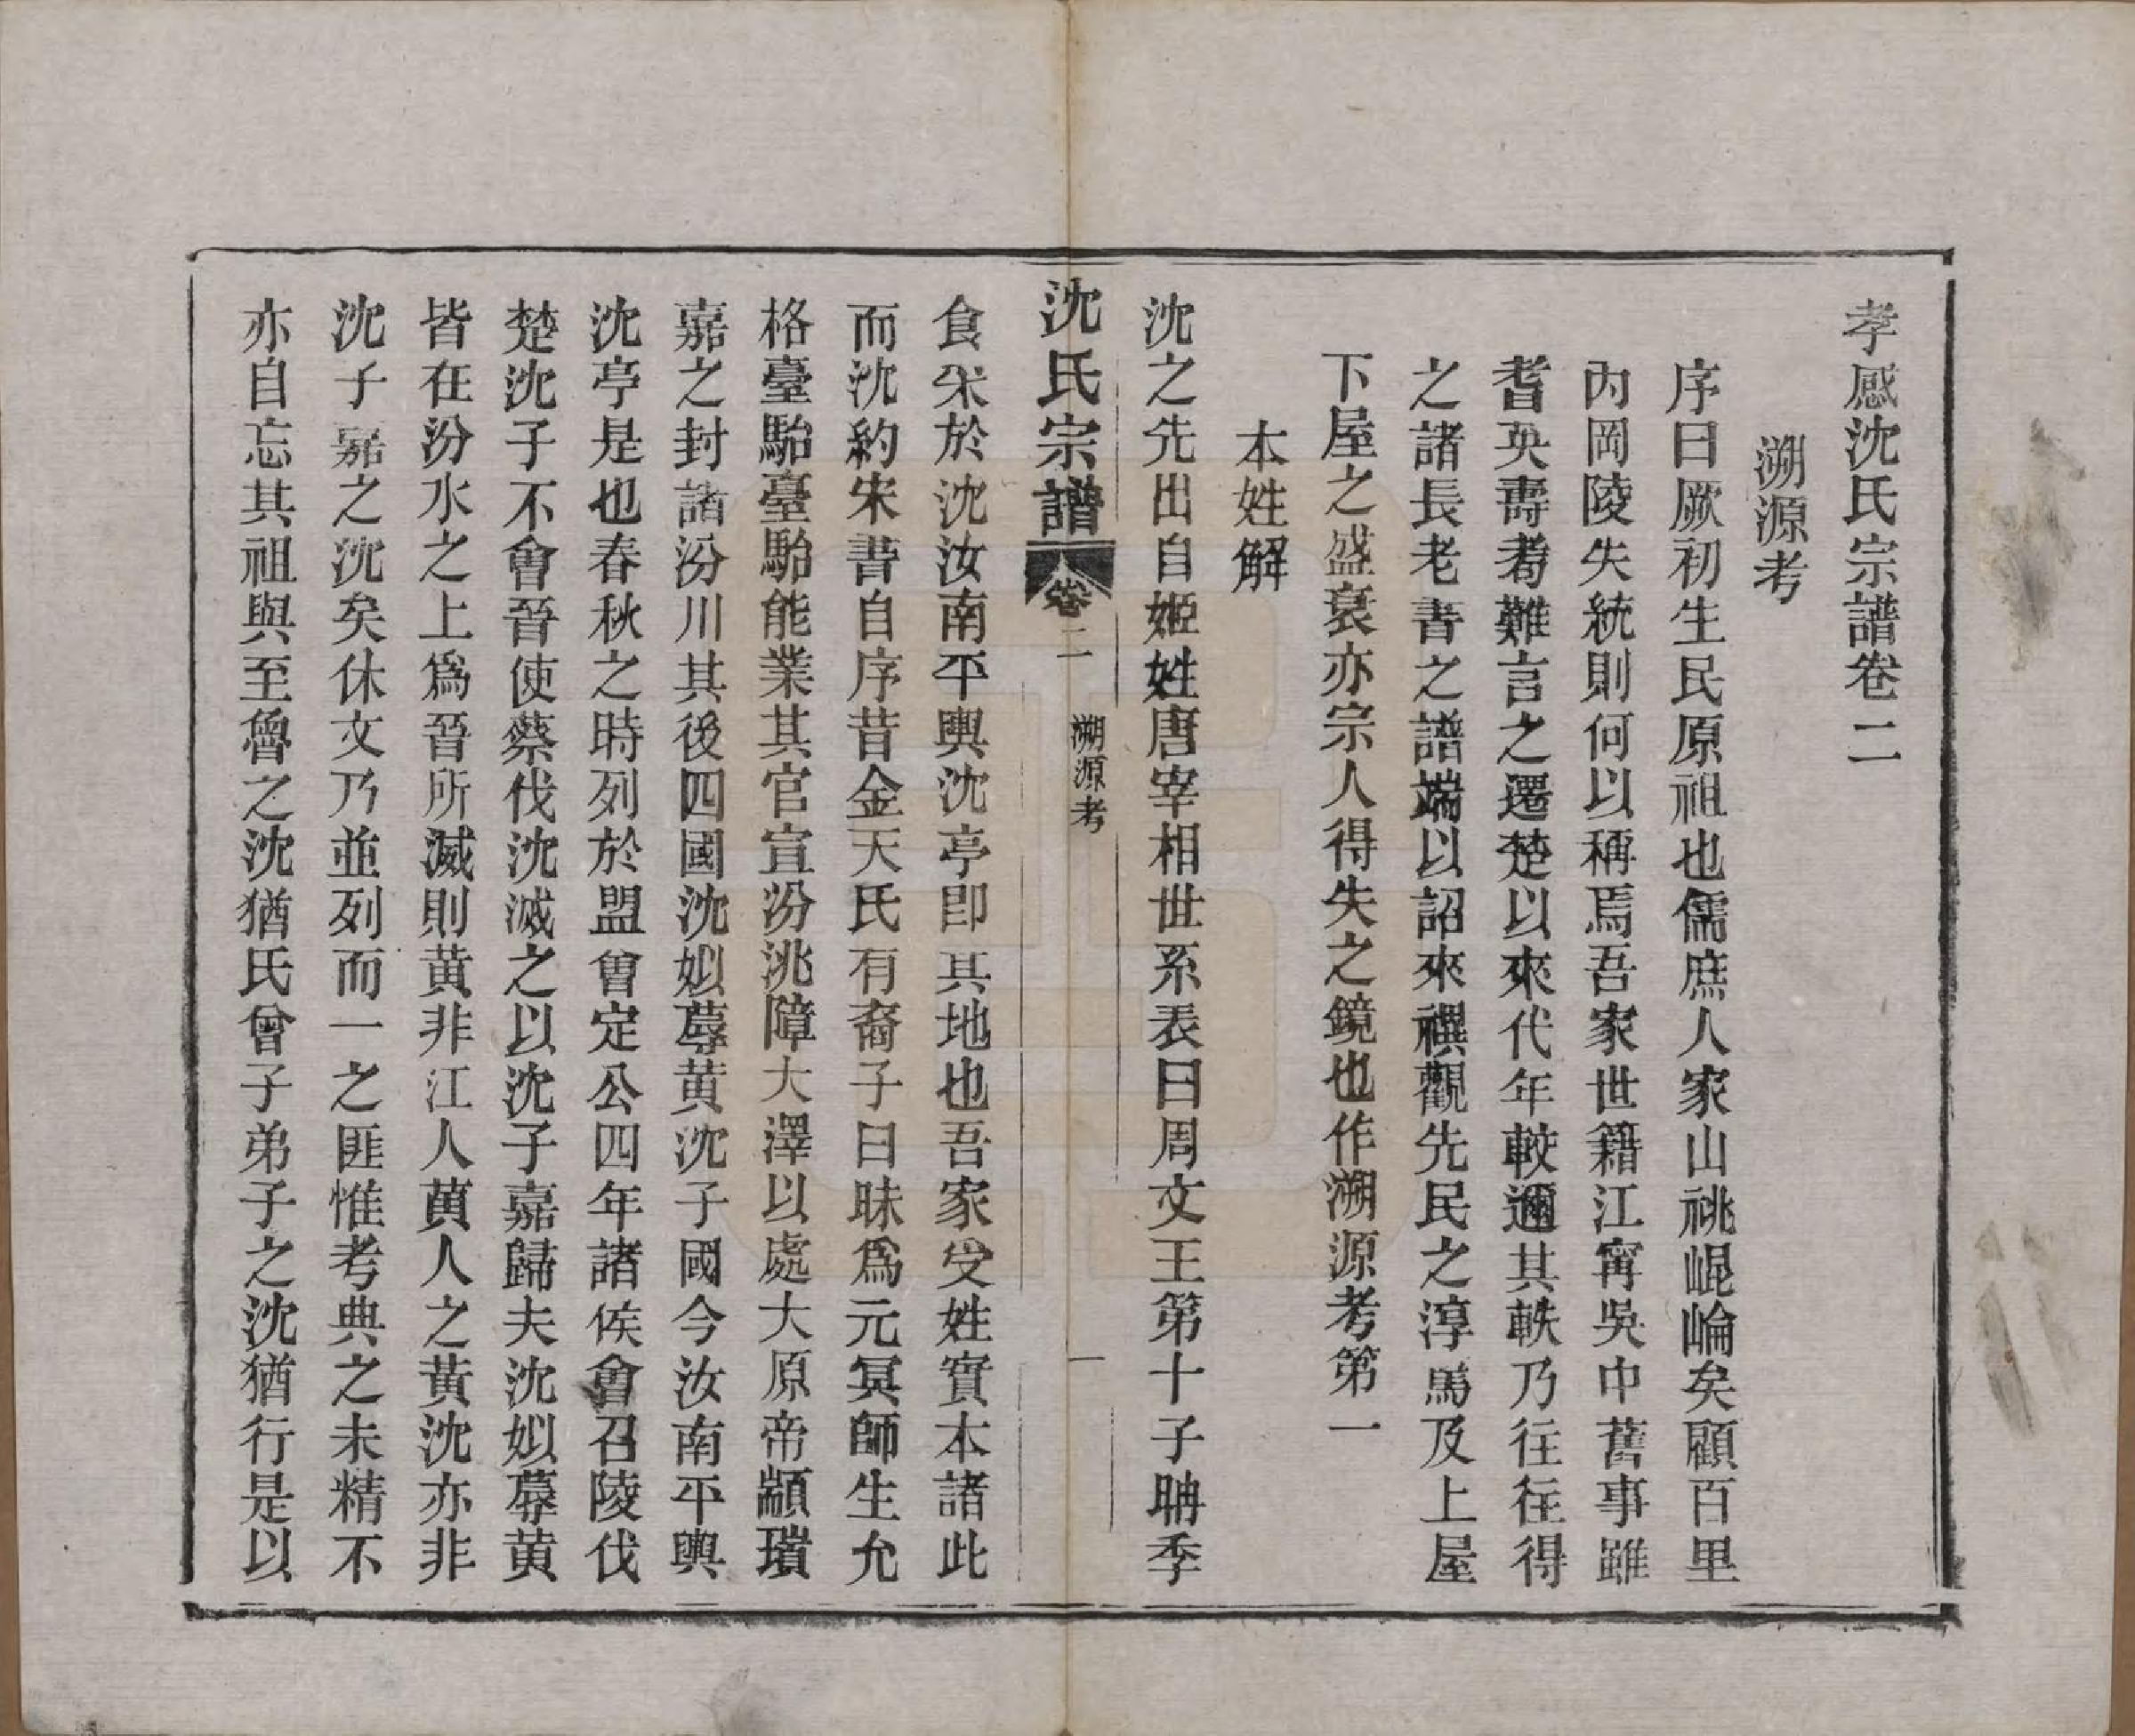 孝感沈氏宗譜卷二
溯源考
序曰厥初生民原祖也儒庶人家山祧崐崘矣顧百里
內岡陵失統則何以稱焉吾家世籍江甯吳中舊事雖
耆英壽耇難言之遷楚以來代年較邇其軼乃往往得
之諸長老書之譜端以詔來禩觀先民之淳馬及上屋
下屋之盛衰亦宗人得失之鏡也作溯源考第一
本姓解
沈之先出自姬姓唐宰相世系表曰周文王第十子聃季
沈氏宗譜
卷二
溯源考
一
食采於沈汝南平輿沈亭卽其地也吾家受姓實本諸此
而沈約宋書自序昔金天氏有裔子曰昧爲元冥師生允
格臺駘臺駘能業其官宣汾洮障大澤以處大原帝顓瑣
嘉之封諸汾川其後四國沈姒蓐黃沈子國今汝南平輿
沈亭是也春秋之時列於盟會定公四年諸侯會召陵伐
楚沈子不會晉使蔡伐沈滅之以沈子嘉歸夫沈姒蓐黃
皆在汾水之上爲晉所滅則黃非江人黃人之黃沈亦非
沈子嘉之沈矣休文乃並列而一之匪惟考典之未精不
亦自忘其祖與至魯之沈猶氏曾子弟子之沈猶行是以